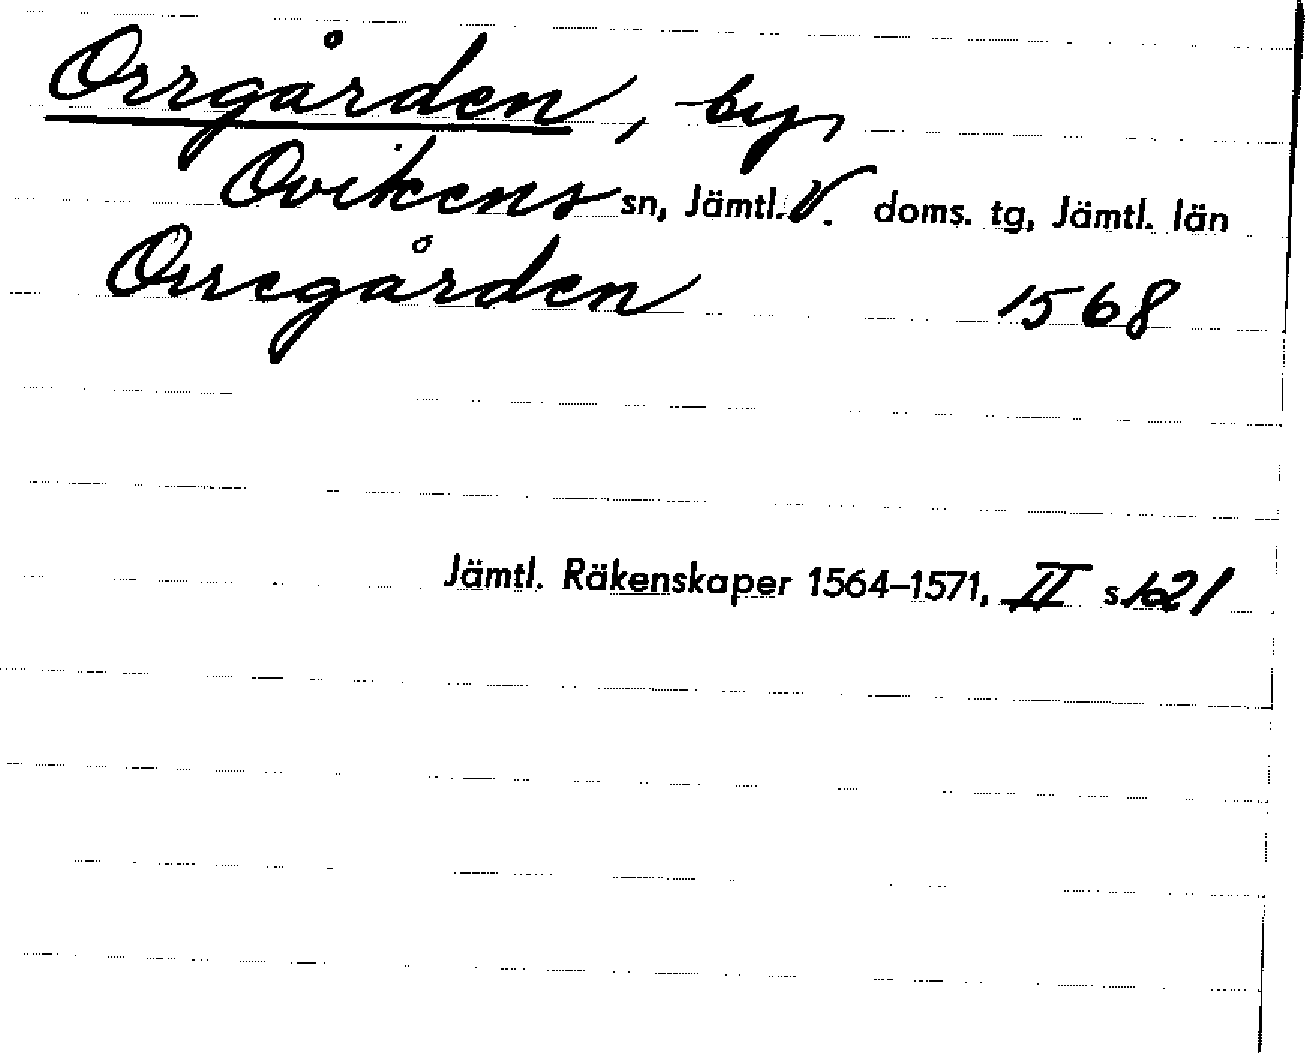 Orrgården, by
Ovikens sn, Jämtl. V. doms. tg, Jämtl. län
Orregården 1568
Jämtl. Räkenskaper 1564–1571, II s. 121